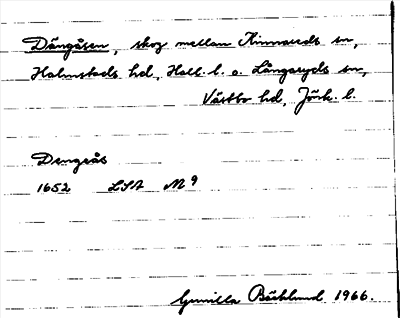 Dängåsen, skog mellan Kinnareds sn,
Halmstads hd, Hall. l. o. Långaryds sn,
Västbo hd, Jönk. l.
Dengeås
1652 LSA M 9
Gunilla Bäcklund 1966.